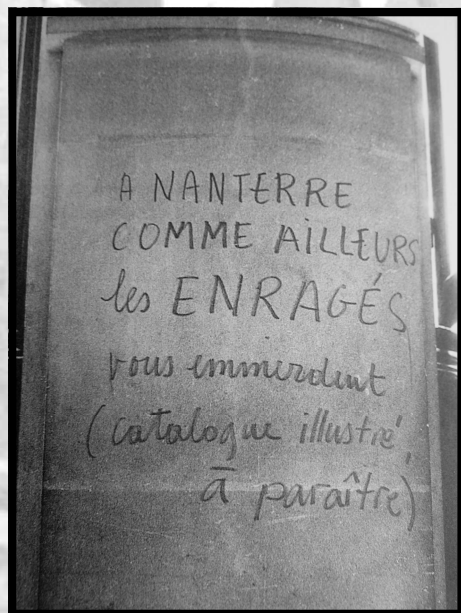 A NANTERRE
COMME AILLEURS
les ENRAGÉS
vous emmerdent
(catalogue illustré,
à paraître)